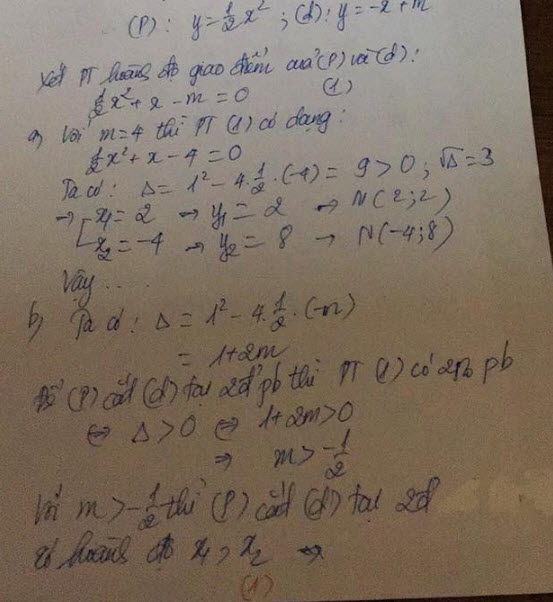 (P): y = 1/2 x² ; (d): y = -x + m
Xét PT hoành độ giao điểm của (P) và (d):
1/2 x² + x - m = 0 (1)
a) Với m = 4 thì PT (1) có dạng:
1/2 x² + x - 4 = 0
Ta có: Δ = 1² - 4.1/2.(-4) = 9 > 0; √Δ = 3
→ [x₁ = 2 → y₁ = 2 → N(2;2)
[x₂ = -4 → y₂ = 8 → N(-4;8)
Vậy ...
b) Ta có: Δ = 1² - 4.1/2.(-m)
= 1 + 2m
Để (P) cắt (d) tại 2đ' pb thì PT (1) có 2n0 pb
⇔ Δ > 0 ⇔ 1 + 2m > 0
⇒ m > -1/2
Với m > -1/2 thì (P) cắt (d) tại 2đ
có hoành độ x₁, x₂ ⇒
(1)